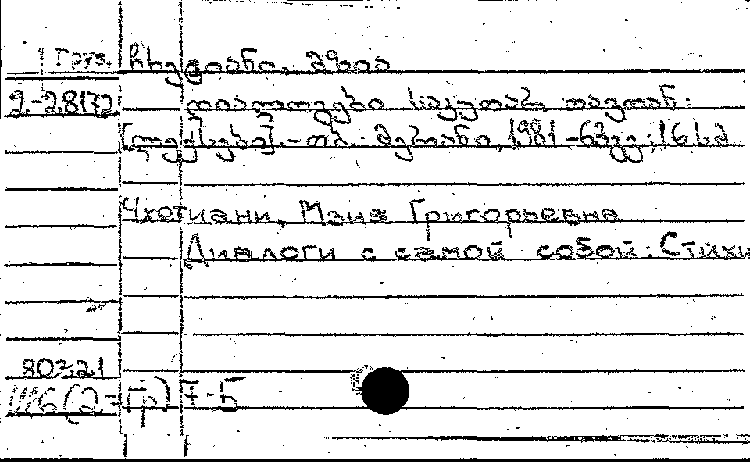 Груз. ჩხეტიანი, მზია
2-28172 დიალოგები საკუთარ თავთან:
[ლექსები].- თბ.: მერანი, 1981 -63გვ.; 16 სმ
Чхетиани, Мзия Григорьевна
Диалоги с самой собой: Стихи
80321
Ш6(2=Гр)7-5